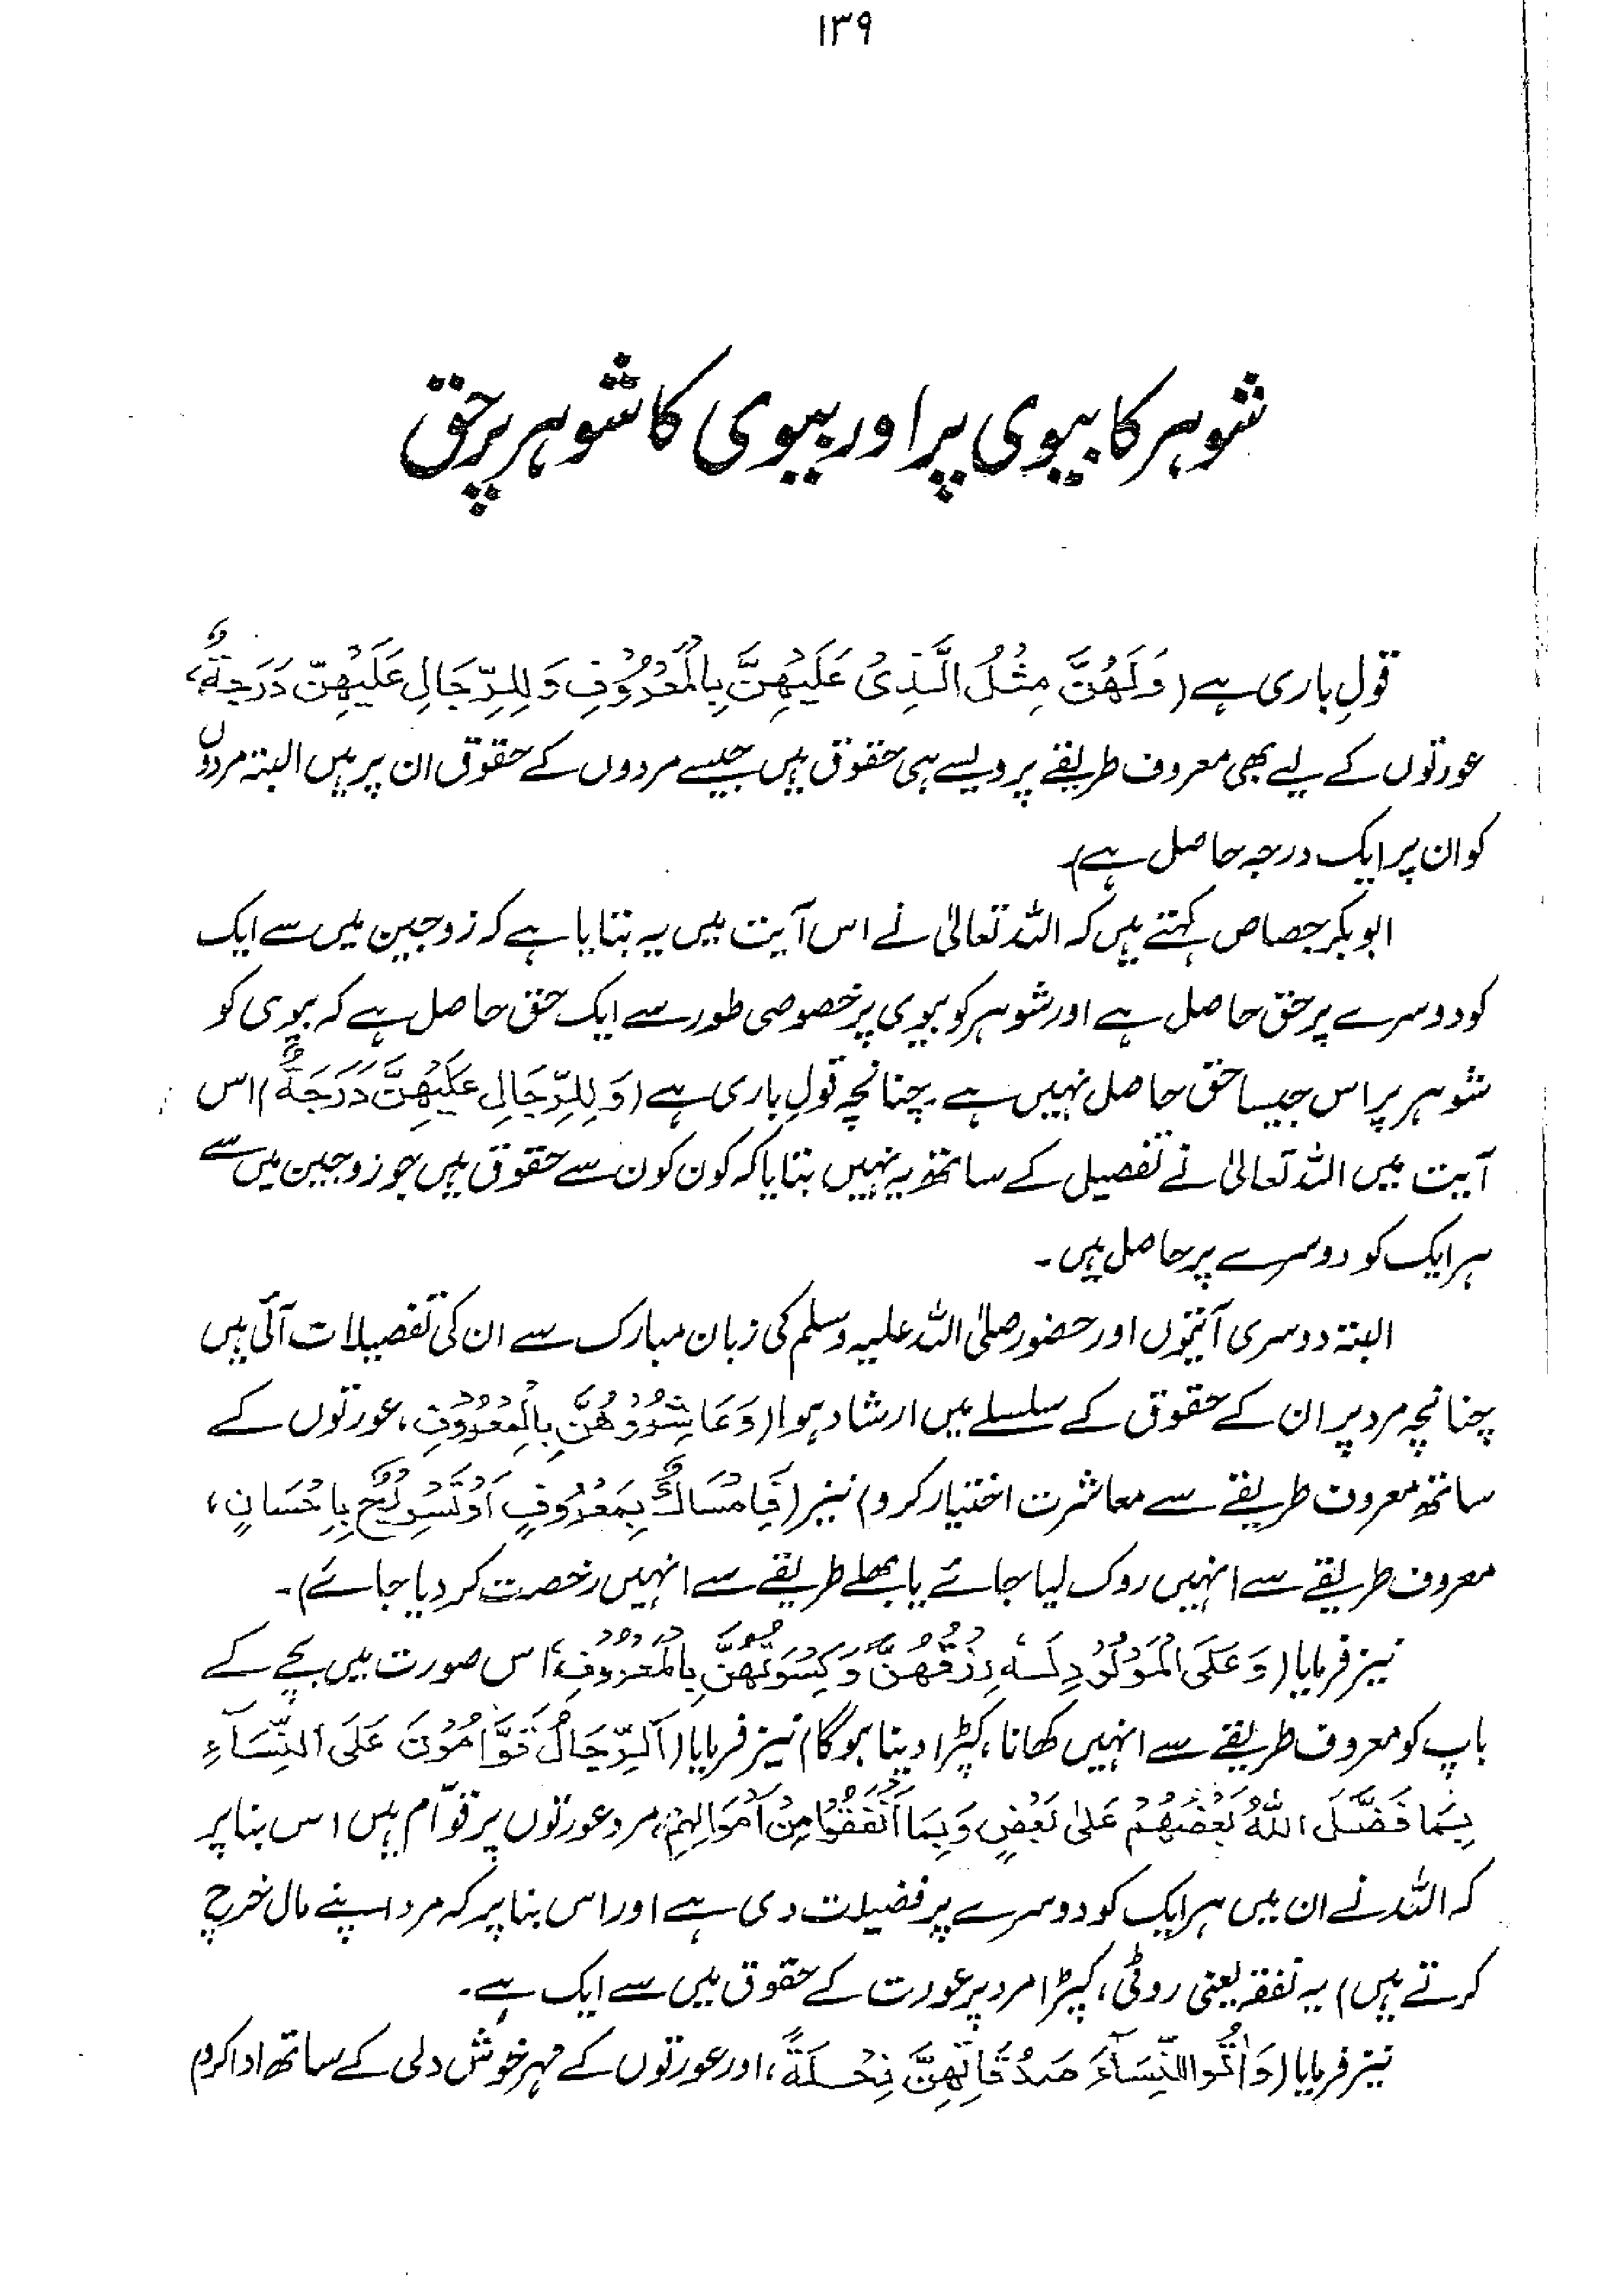 ۱۳۹
شوہر کا بیوی پر اور بیوی کا شوہر پر حق
قولِ باری ہے (وَلَهُنَّ مِثْلُ الَّذِیْ عَلَیْهِنَّ بِالْمَعْرُوْفِ وَلِلرِّجَالِ عَلَیْهِنَّ دَرَجَةٌ،
عورتوں کے لیے بھی معروف طریقے پر ویسے ہی حقوق ہیں جیسے مردوں کے حقوق ان پر ہیں البتہ مردوں
کو ان پر ایک درجہ حاصل ہے)
ابوبکر جصاص کہتے ہیں کہ اللہ تعالیٰ نے اس آیت میں یہ بتایا ہے کہ زوجین میں سے ایک
کو دوسرے پر حق حاصل ہے اور شوہر کو بیوی پر خصوصی طور سے ایک حق حاصل ہے کہ بیوی کو
شوہر پر اس جیسا حق حاصل نہیں ہے۔ چنانچہ قولِ باری ہے (وَلِلرِّجَالِ عَلَیْهِنَّ دَرَجَةٌ) اس
آیت میں اللہ تعالیٰ نے تفصیل کے ساتھ یہ نہیں بتایا کہ کون کون سے حقوق ہیں جو زوجین میں سے
ہر ایک کو دوسرے پر حاصل ہیں۔
البتہ دوسری آیتوں اور حضور صلی اللہ علیہ وسلم کی زبان مبارک سے ان کی تفصیلات آئی ہیں
چنانچہ مرد پر ان کے حقوق کے سلسلے میں ارشاد ہوا (وَعَاشِرُوْهُنَّ بِالْمَعْرُوْفِ، عورتوں کے
ساتھ معروف طریقے سے معاشرت اختیار کرو) نیز (فَاِمْسَاكٌ بِمَعْرُوْفٍ اَوْ تَسْرِیْحٌ بِاِحْسَانٍ،
معروف طریقے سے انہیں روک لیا جائے یا بھلے طریقے سے انہیں رخصت کر دیا جائے)۔
نیز فرمایا (وَعَلَی الْمَوْلُوْدِ لَهٗ رِزْقُهُنَّ وَكِسْوَتُهُنَّ بِالْمَعْرُوْفِ، اس صورت میں بچے کے
باپ کو معروف طریقے سے انہیں کھانا، کپڑا دینا ہوگا) نیز فرمایا (اَلرِّجَالُ قَوَّامُوْنَ عَلَی النِّسَآءِ
بِمَا فَضَّلَ اللّٰهُ بَعْضَهُمْ عَلٰی بَعْضٍ وَبِمَا اَنْفَقُوْا مِنْ اَمْوَالِهِمْ، مرد عورتوں پر قوّام ہیں اس بنا پر
کہ اللہ نے ان میں ہر ایک کو دوسرے پر فضیلت دی ہے اور اس بنا پر کہ مرد اپنے مال خرچ
کرتے ہیں) یہ نفقہ یعنی روٹی، کپڑا مرد پر عورت کے حقوق میں سے ایک ہے۔
نیز فرمایا (وَاٰتُوا النِّسَآءَ صَدُقَاتِهِنَّ نِحْلَةً، اور عورتوں کے مہر خوش دلی کے ساتھ ادا کرو)